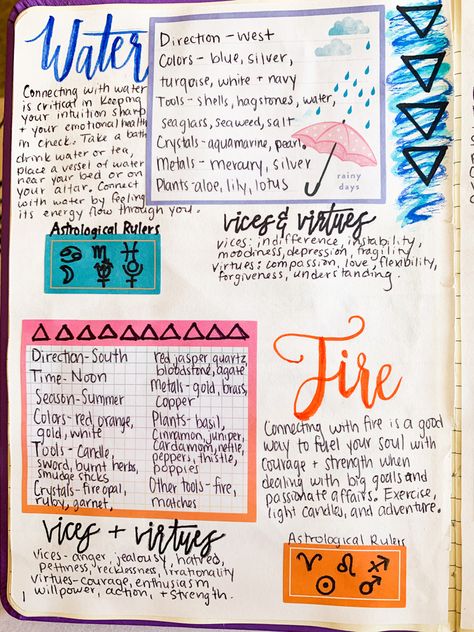 Water
Connecting with water
is critical in keeping
your intuition sharp
+ your emotional health
in check. Take a bath
drink water or tea,
place a vessel of water
near your bed or on
your altar. Connect
with water by feeling
its energy flow through you.
Direction - West
Colors - blue, silver,
turquoise, white + navy
Tools - shells, hagstones, water,
seaglass, seaweed, salt
Crystals - aquamarine, pearl
Metals - mercury, silver
Plants - aloe, lily, lotus
rainy
days
Astrological Rulers
♋ ♏ ♓
vices & virtues
vices: indifference, instability,
moodiness, depression, fragility
virtues: compassion, love, flexibility,
forgiveness, understanding.
Direction - South
Time - Noon
Season - Summer
Colors - red, orange,
gold, white
Tools - Candle,
sword, burnt herbs,
smudge sticks
Crystals - fire opal,
ruby, garnet,
red jasper, quartz,
bloodstone, agate
Metals - gold, brass,
copper
Plants - basil,
Cinnamon, juniper,
cardamom, nettle,
pepper, thistle,
poppies
Other tools - fire,
matches
Fire
Connecting with fire is a good
way to fuel your soul with
courage + strength when
dealing with big goals and
passionate affairs. Exercise,
light candles, and adventure.
vices + virtues
vices - anger, jealousy, hatred,
pettiness, recklessness, irrationality
virtues - courage, enthusiasm
willpower, action, + strength.
Astrological Rulers
♈ ♌ ♐
☉ ♂